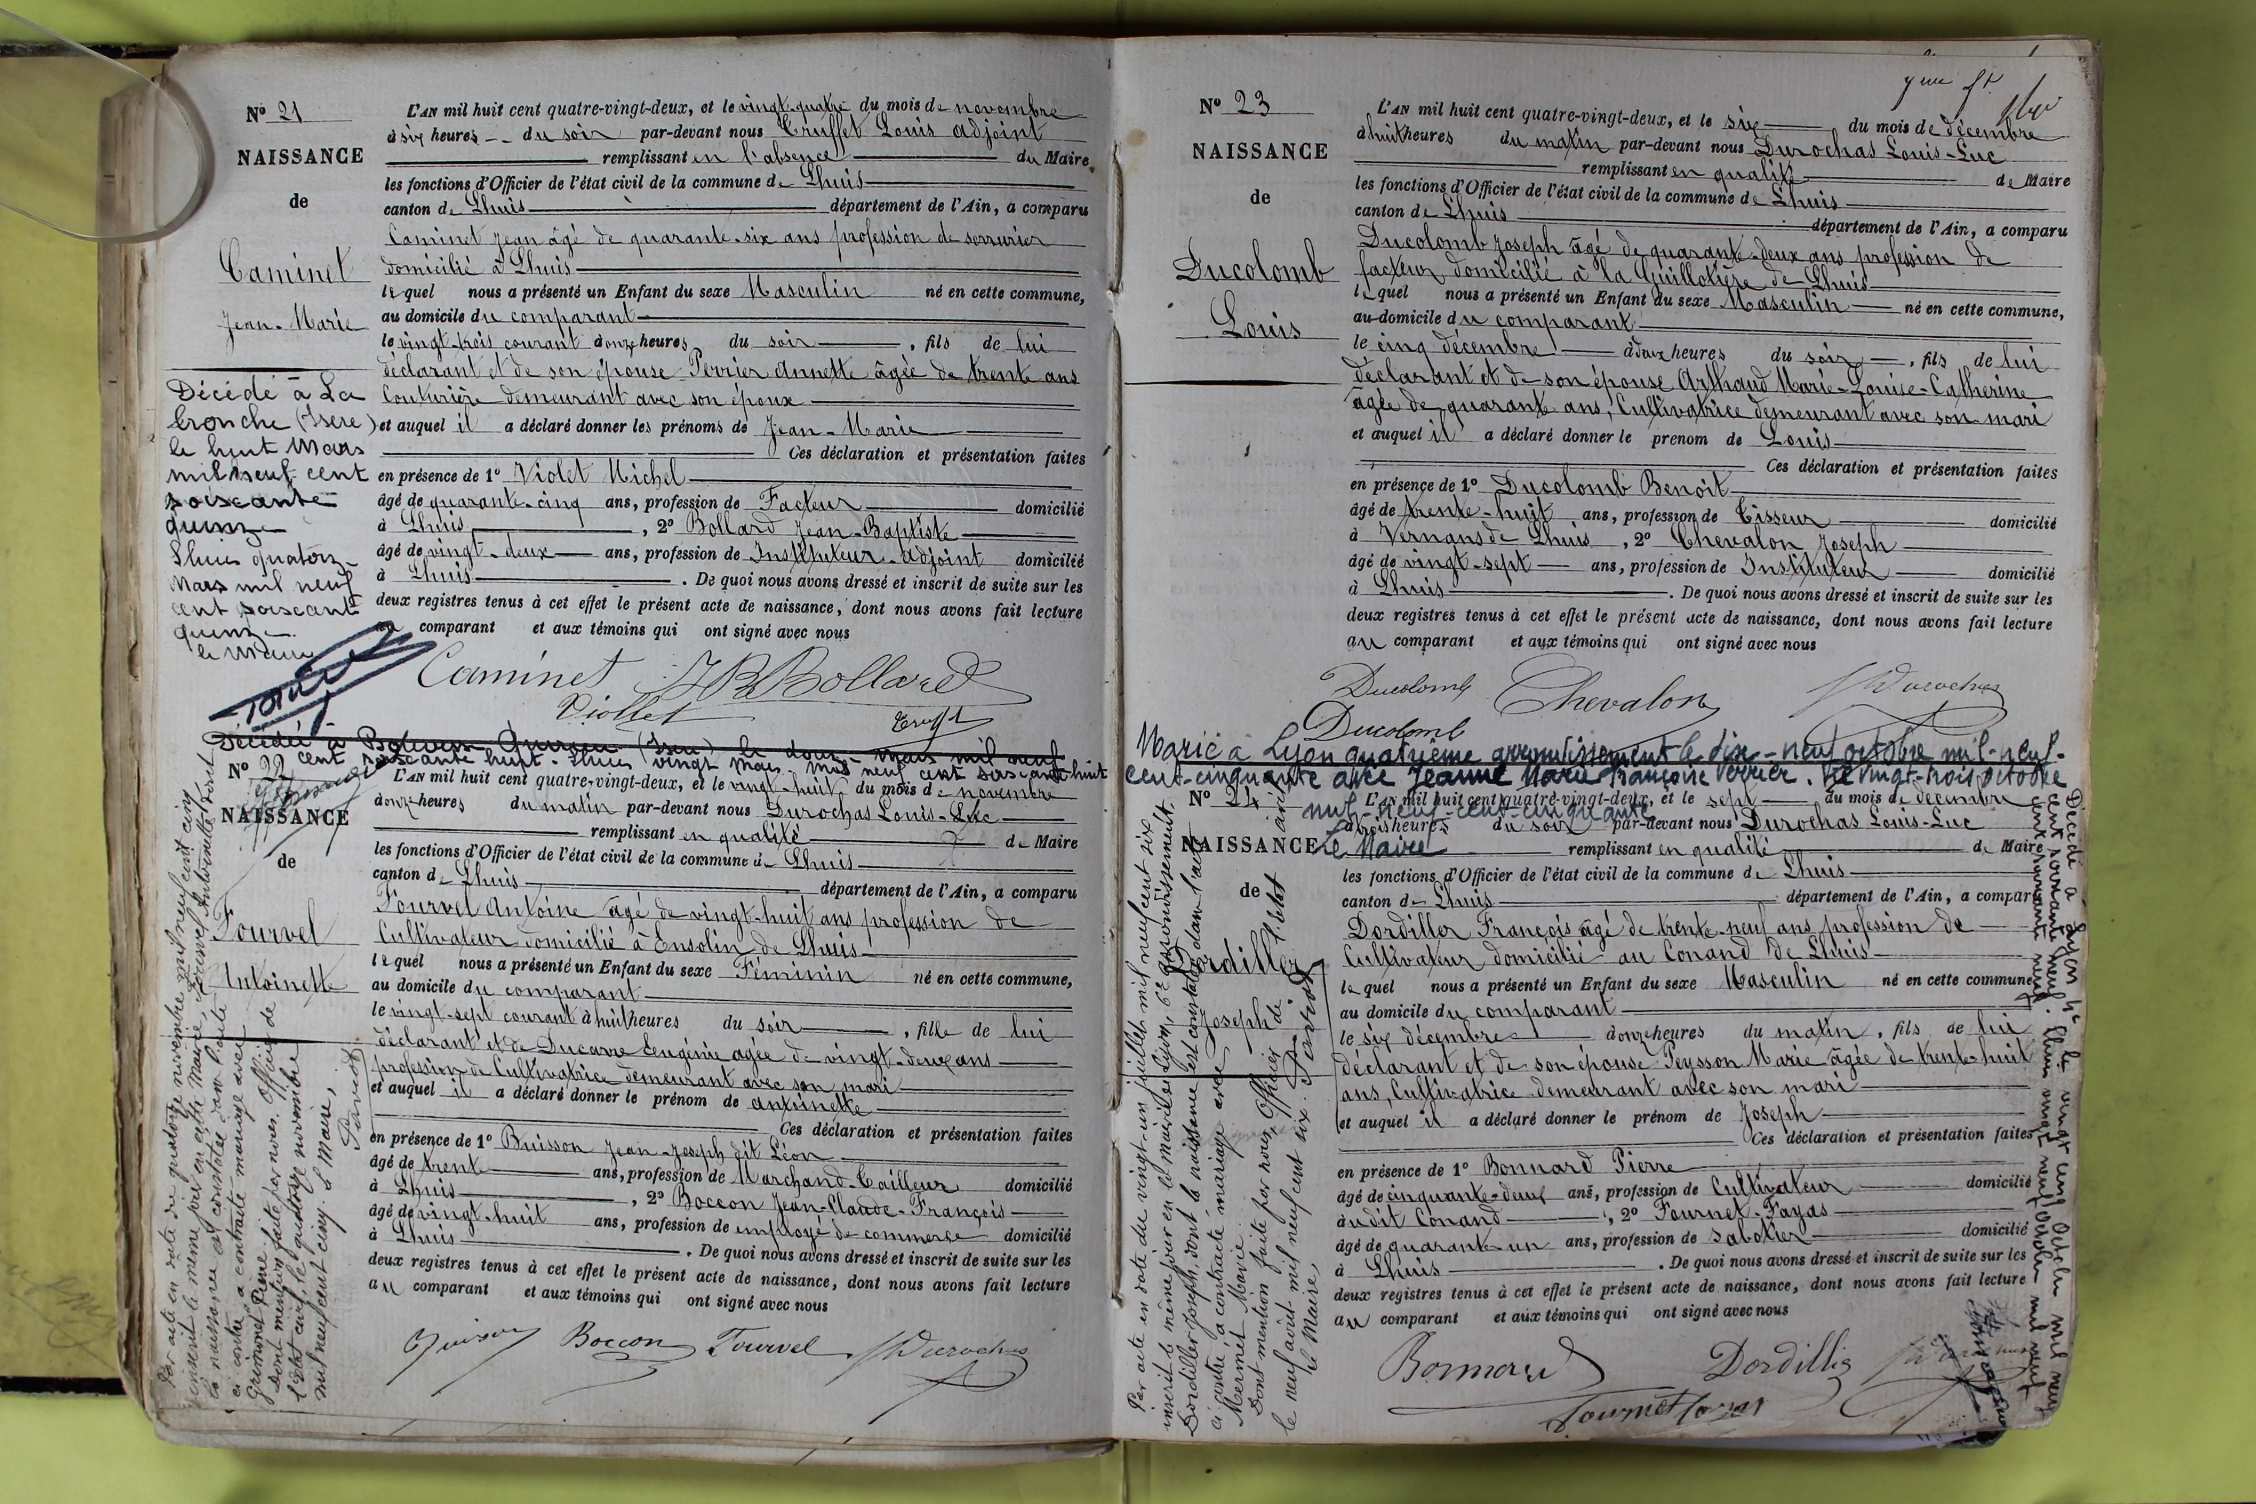 Nº 21
NAISSANCE
de
Caminet
Jean-Marie
Décédé à La
Tronche (Isère)
le huit Mars
mil neuf cent
soixante
quinze
Lhuis quatorze
Mars mil neuf
cent soixante
quinze
le Maire
L'AN mil huit cent quatre-vingt-deux, et le vingt-quatre du mois de novembre
à six heures du soir par-devant nous Truffet Louis adjoint
remplissant en l'absence du Maire,
les fonctions d'Officier de l'état civil de la commune de Lhuis
canton de Lhuis département de l'Ain, a comparu
Caminet Jean âgé de quarante-six ans profession de serrurier
domicilié à Lhuis
lequel nous a présenté un Enfant du sexe Masculin né en cette commune,
au domicile du comparant
le vingt-trois courant à onze heures du soir, fils de lui
déclarant et de son épouse Perrier Annette âgée de trente ans
Couturière demeurant avec son époux
et auquel il a déclaré donner les prénoms de Jean-Marie
Ces déclaration et présentation faites
en présence de 1º Violet Michel
âgé de quarante-cinq ans, profession de Facteur domicilié
à Lhuis, 2º Bollard Jean-Baptiste
âgé de vingt-deux ans, profession de Instituteur-adjoint domicilié
à Lhuis. De quoi nous avons dressé et inscrit de suite sur les
deux registres tenus à cet effet le présent acte de naissance, dont nous avons fait lecture
au comparant et aux témoins qui ont signé avec nous
Caminet JB Bollard
Viollet
Décédée à (Isère) le douze mars mil neuf
cent soixante huit. Lhuis vingt Mars mil neuf cent soixante huit
Nº 22
NAISSANCE
de
Fourvel
Antoinette
L'AN mil huit cent quatre-vingt-deux, et le vingt-huit du mois de novembre
à onze heures du matin par-devant nous Durochas Louis-Luc
remplissant en qualité de Maire
les fonctions d'Officier de l'état civil de la commune de Lhuis
canton de Lhuis département de l'Ain, a comparu
Fourvel Antoine âgé de vingt-huit ans profession de
Cultivateur domicilié à Ensolin de Lhuis
lequel nous a présenté un Enfant du sexe Féminin né en cette commune,
au domicile du comparant
le vingt-sept courant à huit heures du soir, fille de lui
déclarant et de Ducarre Eugénie agée de vingt-deux ans
profession de Cultivatrice demeurant avec son mari
et auquel il a déclaré donner le prénom de antoinette
Ces déclaration et présentation faites
en présence de 1º Buisson Jean-Joseph dit Léon
âgé de trente ans, profession de Marchand-Tailleur domicilié
à Lhuis, 2º Boccon Jean-Claude-François
âgé de vingt-huit ans, profession de employé de commerce domicilié
à Lhuis. De quoi nous avons dressé et inscrit de suite sur les
deux registres tenus à cet effet le présent acte de naissance, dont nous avons fait lecture
au comparant et aux témoins qui ont signé avec nous
Buisson Boccon Fourvel Durochas
Par acte en date du quatorze novembre mil neuf cent cinq
inscrit le même jour en cette mairie, Fourvel Antoinette dont
la naissance est constatée dans l'acte
ci contre a contracté mariage avec
Grimonet Pierre.
Dont mention faite par nous Officier de
l'état civil, le quatorze novembre
mil neuf cent cinq. Le Maire,
Nº 23
NAISSANCE
de
Ducolomb
Louis
L'AN mil huit cent quatre-vingt-deux, et le six du mois de décembre
à huit heures du matin par-devant nous Durochas Louis-Luc
remplissant en qualité de Maire
les fonctions d'Officier de l'état civil de la commune de Lhuis
canton de Lhuis département de l'Ain, a comparu
Ducolomb Joseph âgé de quarante-deux ans profession de
facteur domicilié à la Guillotière de Lhuis
lequel nous a présenté un Enfant du sexe Masculin né en cette commune,
au domicile du comparant
le cinq décembre à heures du soir, fils de lui
déclarant et de son épouse Arthaud Marie-Louise-Catherine
âgée de quarante ans, Cultivatrice demeurant avec son mari
et auquel il a déclaré donner le prenom de Louis
Ces déclaration et présentation faites
en présence de 1º Ducolomb Benoît
âgé de trente-huit ans, profession de Tisseur domicilié
à Vernans de Lhuis, 2º Chevalon Joseph
âgé de vingt-sept ans, profession de Instituteur domicilié
à Lhuis. De quoi nous avons dressé et inscrit de suite sur les
deux registres tenus à cet effet le présent acte de naissance, dont nous avons fait lecture
au comparant et aux témoins qui ont signé avec nous
Ducolomb Chevalon Durochas
Ducolomb
Marié à Lyon quatrième arrondissement le dix-neuf octobre mil-neuf-
cent-cinquante avec Jeanne Marie Françoise Verrier. Le vingt-trois octobre
mil-neuf-cent-cinquante
Le Maire
Nº 24
NAISSANCE
de
Dordillier
Joseph
L'AN mil huit cent quatre-vingt-deux, et le sept du mois de décembre
à trois heures du soir par-devant nous Durochas Louis-Luc
remplissant en qualité de Maire
les fonctions d'Officier de l'état civil de la commune de Lhuis
canton de Lhuis département de l'Ain, a comparu
Dordillier François âgé de trente-neuf ans profession de
Cultivateur domicilié au Conand de Lhuis
lequel nous a présenté un Enfant du sexe Masculin né en cette commune
au domicile du comparant
le six décembre à onze heures du matin, fils de lui
déclarant et de son épouse Peysson Marie âgée de trente-huit
ans, Cultivatrice demeurant avec son mari
et auquel il a déclaré donner le prénom de Joseph
Ces déclaration et présentation faites
en présence de 1º Bonnard Pierre
âgé de cinquante-deux ans, profession de Cultivateur domicilié
à udit Conand, 2º Fournet-Fayas
âgé de quarante-un ans, profession de sabotier domicilié
à Lhuis. De quoi nous avons dressé et inscrit de suite sur les
deux registres tenus à cet effet le présent acte de naissance, dont nous avons fait lecture
au comparant et aux témoins qui ont signé avec nous
Bonnard Dordillier
Par acte en date du vingt-un juillet mil neuf cent six
inscrit le même jour en la mairie de Lyon, 6e arrondissement,
Dordillier Joseph, dont la naissance est constatée dans l'acte
ci contre, a contracté mariage avec
Mermet Marie.
Dont mention faite par nous, Officier de l'état civil
le neuf août mil neuf cent six.
le Maire,
Décédé à Lyon 4e le vingt cinq Octobre mil neuf
cent soixante neuf. Lhuis vingt neuf Octobre mil neuf
cent soixante neuf.